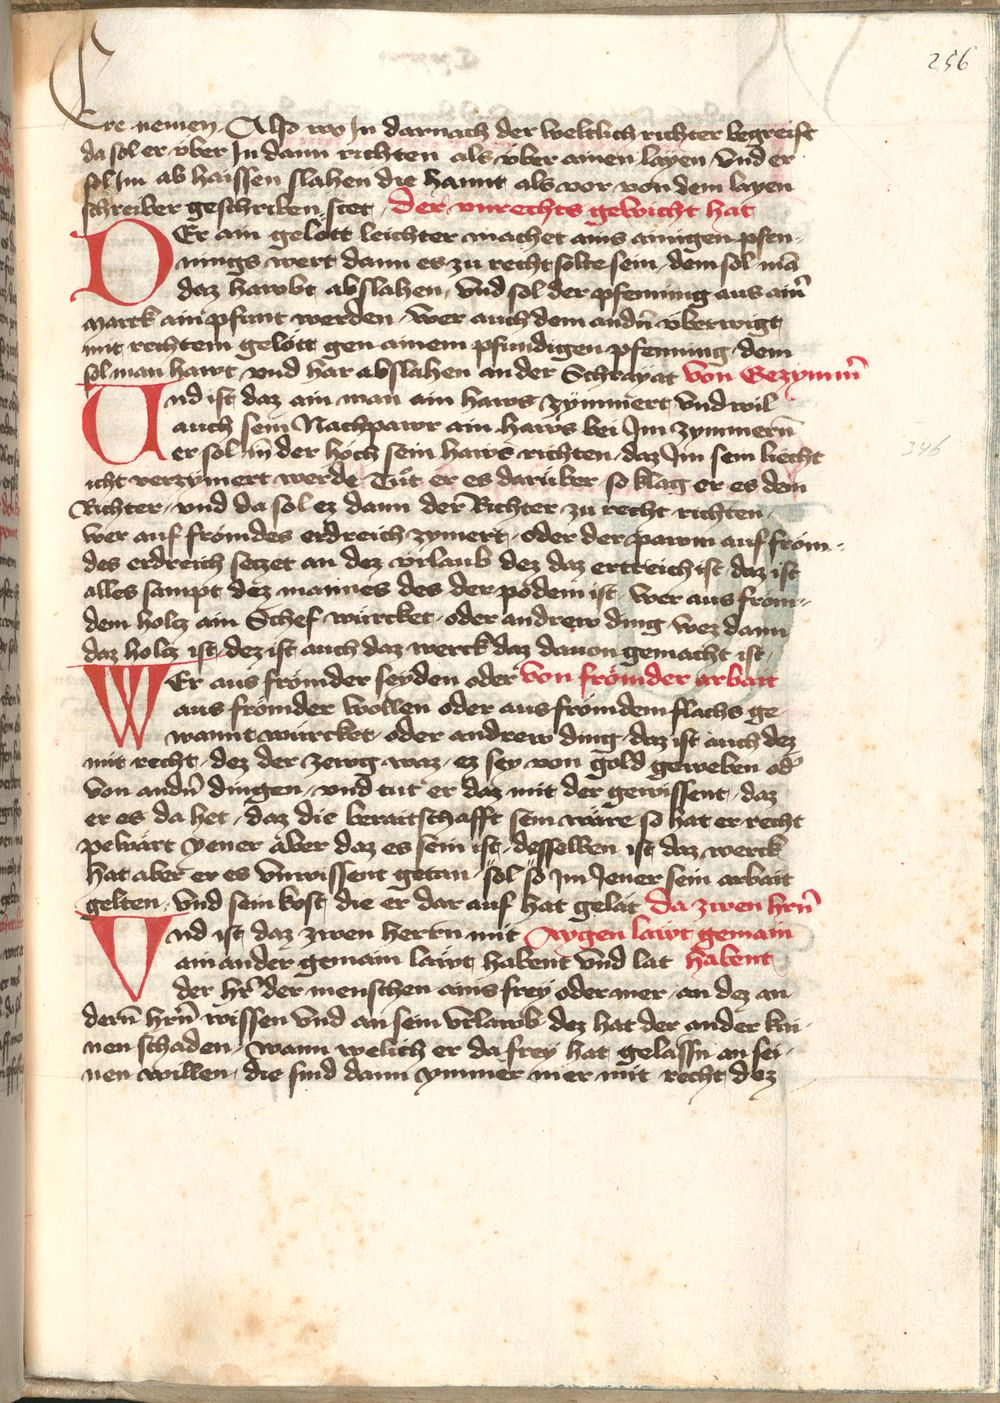 256
Ere nemen. Also wo In darnach der weltlich richter begreift
da sol er vber In dann richten als vber ainen layen Vnd er
sol Im ab haissen slahen die hannt als vor von dem layen
schreiber geschriben stet Der vnrechts gewicht hat
DEr ain gelött leichter machet ains ainigen pfen-
nings wert dann es zu recht solte sein dem sol mā
daz hawbt abslahen, Vnd sol der pfenning aus ain̄
marck ain pfunt werden. Wer auch dem andn̄ vberwigt
mit rechtem gelött gen ainem pfundigen pfenning dem
sol man hawt vnd har abslahen an der Schrayat Von Gezymm̄
Und ist daz ain man ain haws zymmert Vnd wil
auch sein Nachpawr ain haws bei Im zymmern
er sol in der höch sein haws richten, daz Im sein liecht
346
icht verzymert werde Tüt er es darüber so klag er es dem
Richter, vnd da sol ez dann der Richter zu recht richten,
Wer auf frömdes erdreich zymert, oder der pawm auf fröm-
des erdreich seczet an dez vrlaub dez daz ertreich ist, daz ist
alles sampt dez mannes des der podem ist. Wer aus fröm-
dem holcz ain Schef würcket, oder andrew ding, wez dann
daz holcz ist, dez ist auch daz werck daz dauon gemacht ist,
WEr aus frömder seyden oder Von frömder arbait
aus frömder wollen oder aus frömdem flachs ge-
wannt würcket, oder andrew ding, daz ist auch dez
mit recht, dez der zewg waz, ez sey von gold geweben od̄
von andn̄ dingen, vnd tut er daz mit der gewissent, daz
er es da het, daz die beraitschafft sein wäre so hat er recht
pewärt yener äber daz es sein ist, desselben ist daz werck
hat aber er es Vnwissent getan, sol so Im Jener sein arbait
gelten, Vnd sein kost, die er dar auf hat gelät Da zwen hrn̄
Vnd ist daz zwen herrn mit Aygen läwt gemain
ainander gemain läwt habent Vnd lat habent
der hr̄ der menschen ains frey oder mer, an dez an
dern̄ hrn̄ wissen Vnd an sein Vrlawb dez hat der ander kai-
nen schaden, Wann welich er da frey hat gelassn̄ an sei-
nen willen, die sind dann ymmer mer mit recht dez